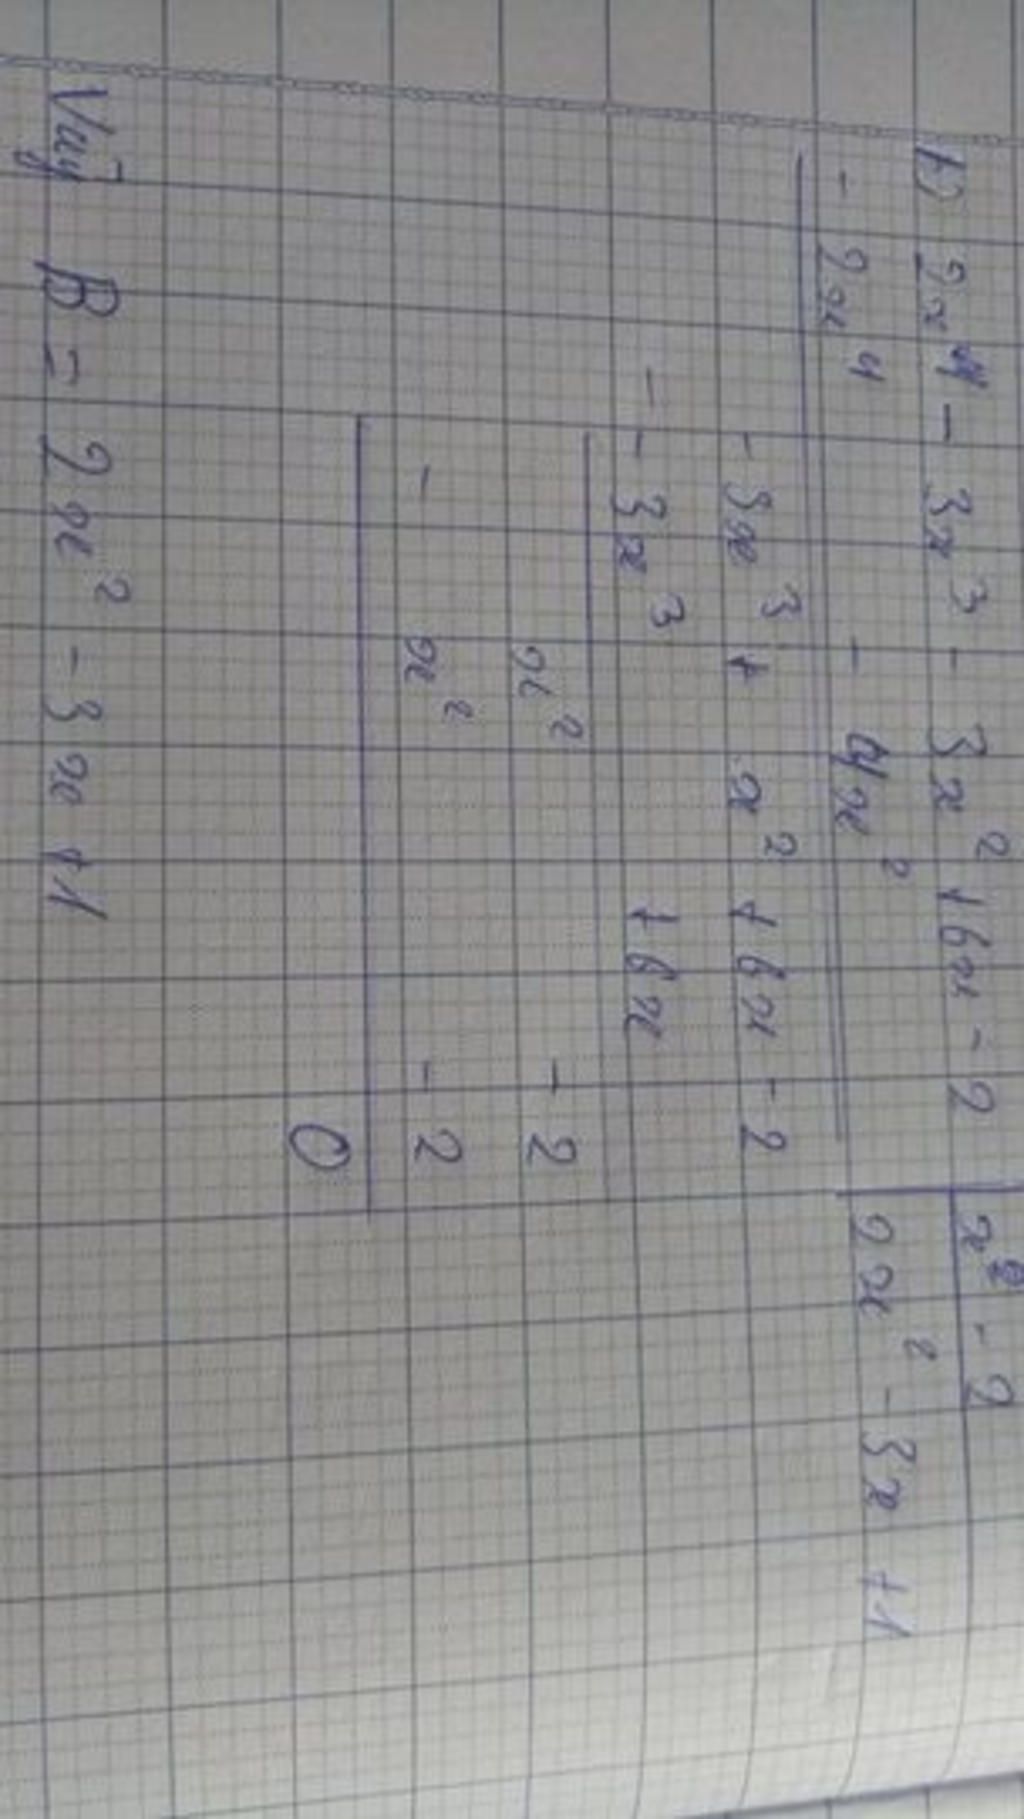 b) 2x⁴ - 3x³ - 3x² + 6x - 2 | x² - 2
- 2x⁴ - 4x² | 2x² - 3x + 1
- 3x³ + x² + 6x - 2
- - 3x³ + 6x
x² - 2
- x² - 2
0
Vậy B = 2x² - 3x + 1